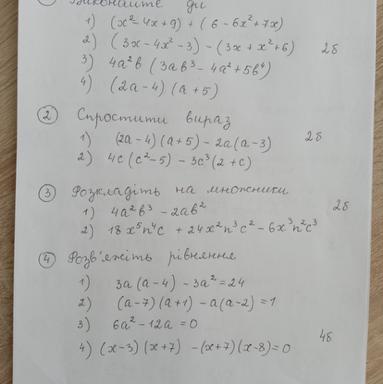 ① Виконайте дії
1) (x² - 4x + 9) + (6 - 6x² + 7x)
2) (3x - 4x² - 3) - (3x + x² + 6) 2б
3) 4a²b (3ab³ - 4a² + 5b⁴)
4) (2a - 4) (a + 5)
② Спростити вираз
1) (2a - 4) (a + 5) - 2a (a - 3) 2б
2) 4c (c² - 5) - 3c³ (2 + c)
③ Розкладіть на множники
1) 4a²b³ - 2ab² 2б
2) 18x⁵n⁴c + 24x²n³c² - 6x³n²c³
④ Розв'яжіть рівняння
1) 3a (a - 4) - 3a² = 24
2) (a - 7) (a + 1) - a (a - 2) = 1
3) 6a² - 12a = 0
4) (x - 3) (x + 7) - (x + 7) (x - 8) = 0 4б